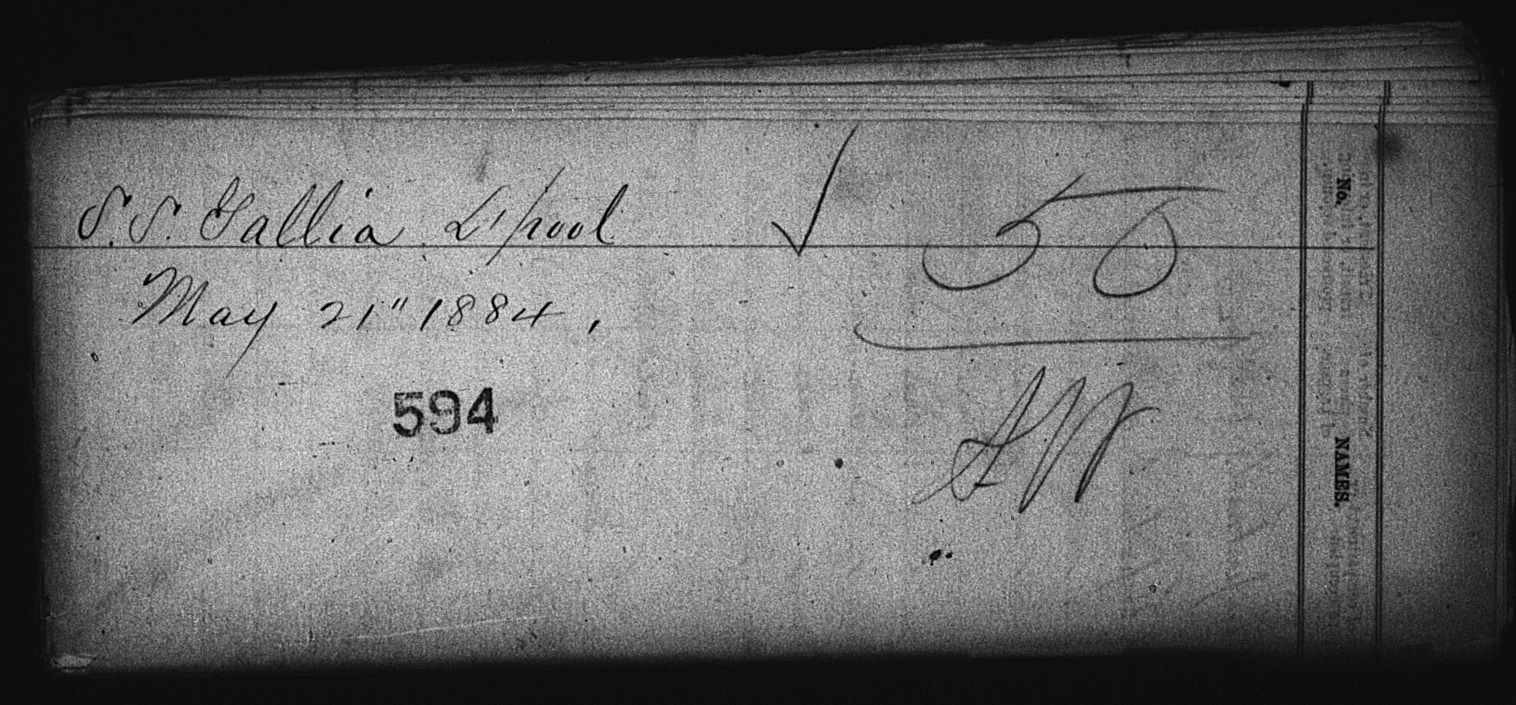 S.S. Gallia L'pool √ 50
May 21" 1884.
594
No. NAMES.